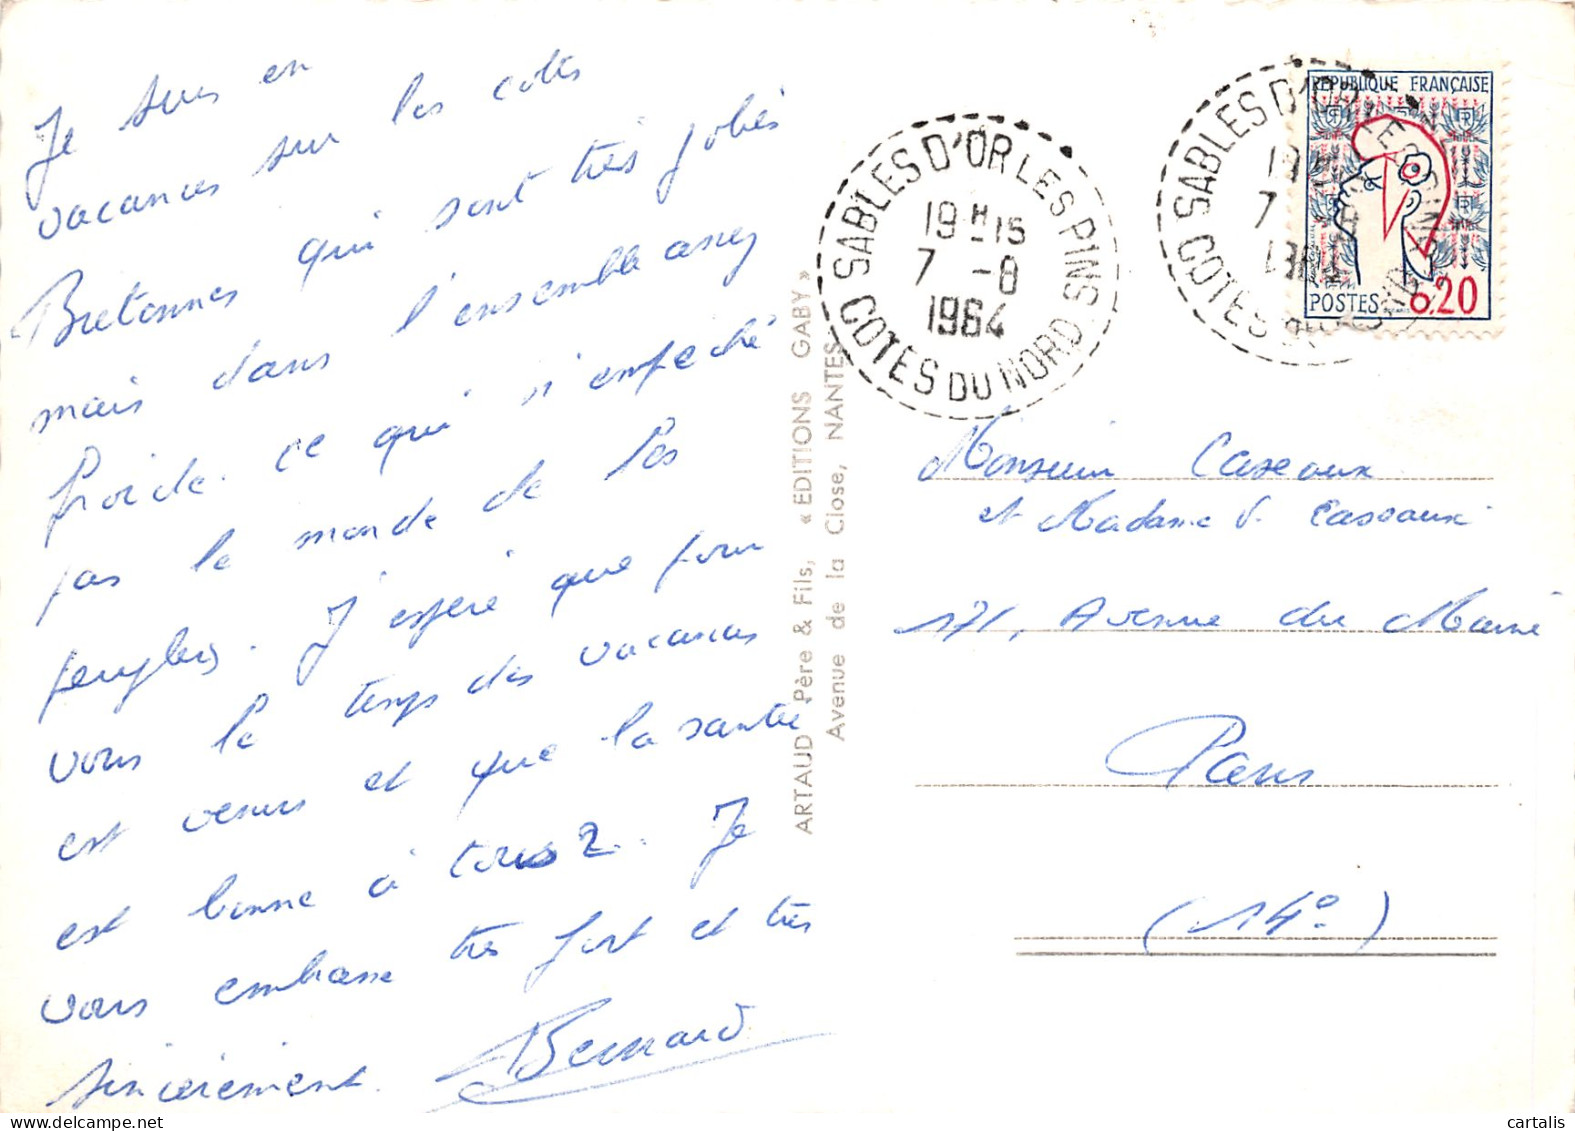 Je suis en
vacances sur les cotes
Bretonnes qui sont très jolies
mais dans l'ensemble assez
froide. ce qui n'empeche
pas le monde de les
peupler. J'espère que pour
vous le temps des vacances
est venus et que la santée
est bonne à tous 2. Je
vous embrasse très fort et très
sincèrement. Bernard
ARTAUD Père & Fils, « EDITIONS GABY »
Avenue de la Close, NANTES
SABLES D'OR LES PINS
19H15
7 -8
1964
COTES DU NORD
SABLES D'OR LES PINS
7
COTES DU NORD
REPUBLIQUE FRANÇAISE
POSTES 0.20
Monsieur Caseaux
et Madame V. Caseaux
171, Avenue du Maine
Paris
(14e)
cartalis